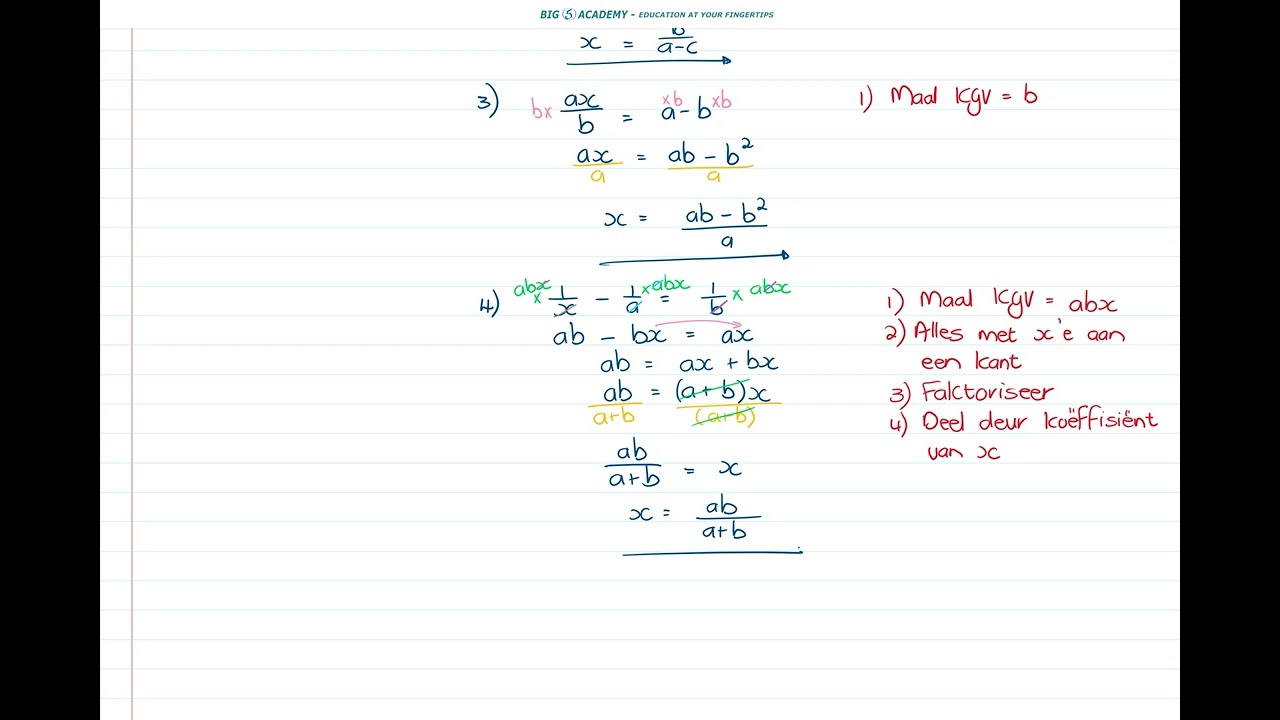 BIG 5 ACADEMY - EDUCATION AT YOUR FINGERTIPS
x = b/(a-c)
3) bx ax/b = a xb - b xb
1) Maal kgv = b
ax/a = (ab - b²)/a
x = (ab - b²)/a
4) abx x 1/x - 1/a x abx = 1/b x abx
ab - bx = ax
ab = ax + bx
ab/(a+b) = (a+b)x/(a+b)
ab/(a+b) = x
x = ab/(a+b)
1) Maal kgv = abx
2) Alles met x'e aan
een kant
3) Faktoriseer
4) Deel deur koëffisiënt
van x